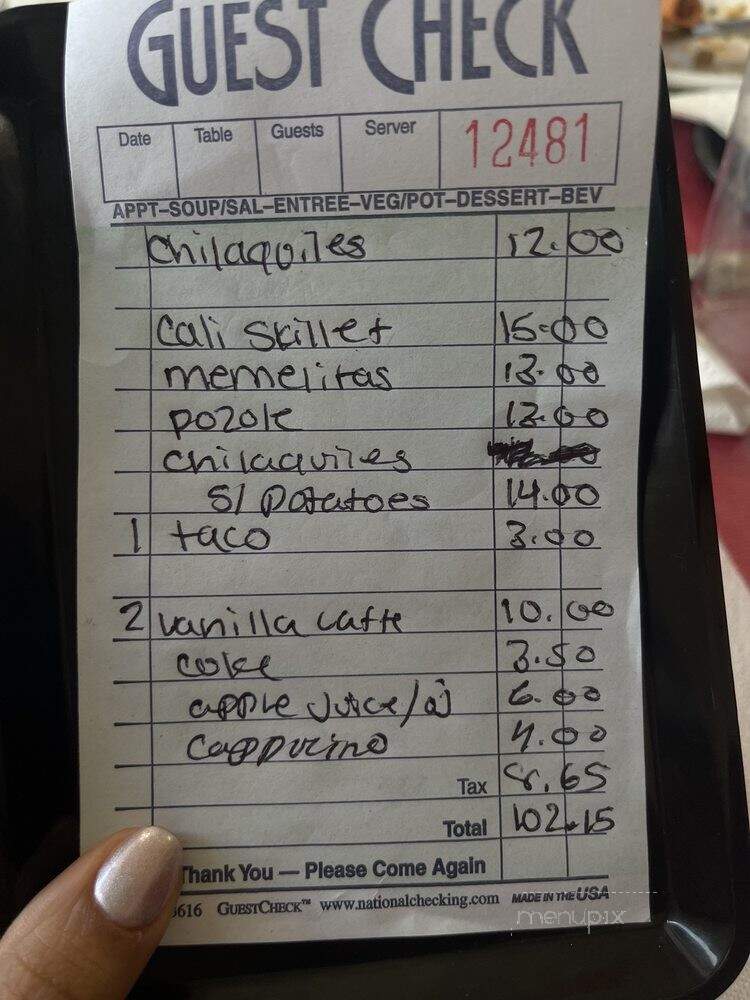 GUEST CHECK
Date Table Guests Server 12481
APPT–SOUP/SAL–ENTREE–VEG/POT–DESSERT–BEV
Chilaquiles 12.00
Cali Skillet 15.00
memelitas 13.00
pozole 13.00
Chilaquiles
S/ potatoes 14.00
1 taco 3.00
2 vanilla Latte 10.00
coke 3.50
apple Juice/OJ 6.00
Cappucino 4.00
Tax 8.65
Total 102.15
Thank You — Please Come Again
3616 GUESTCHECK™ www.nationalchecking.com MADE IN THE USA
menupix